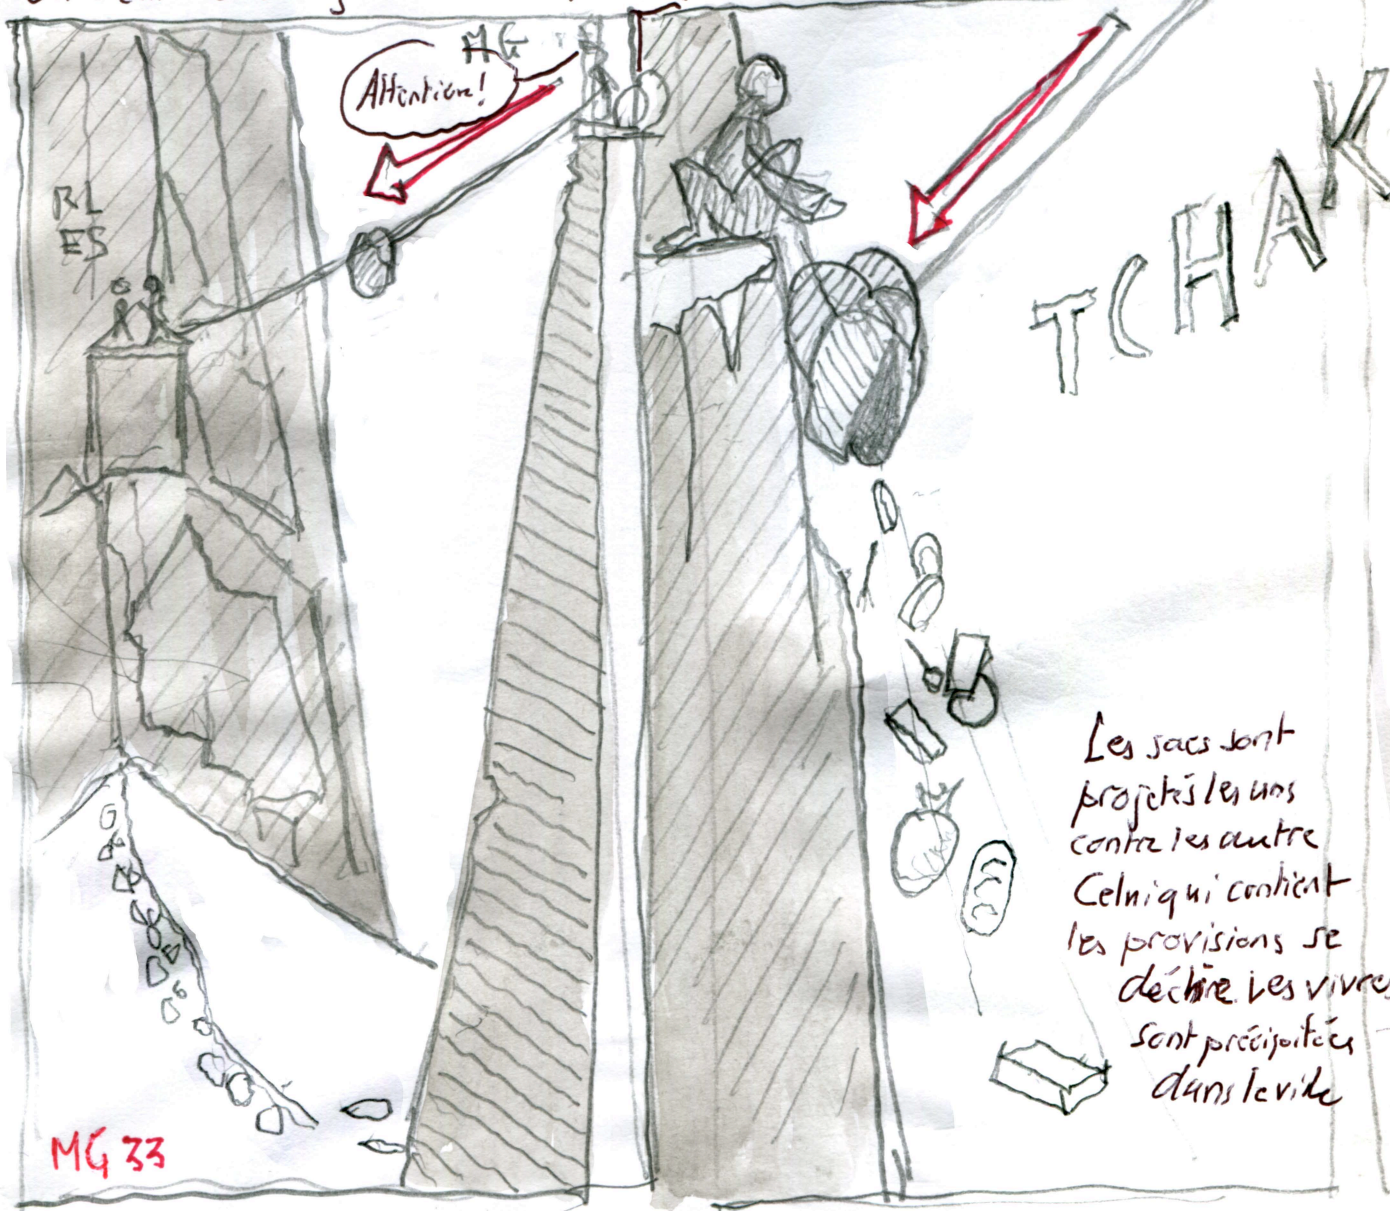 MG
Attention!
RL
ES
TCHAK
Les sacs sont
projetés les uns
contre les autre
Celui qui contient
les provisions se
déchire. Les vivres
sont précipitées
dans le vide
MG 33